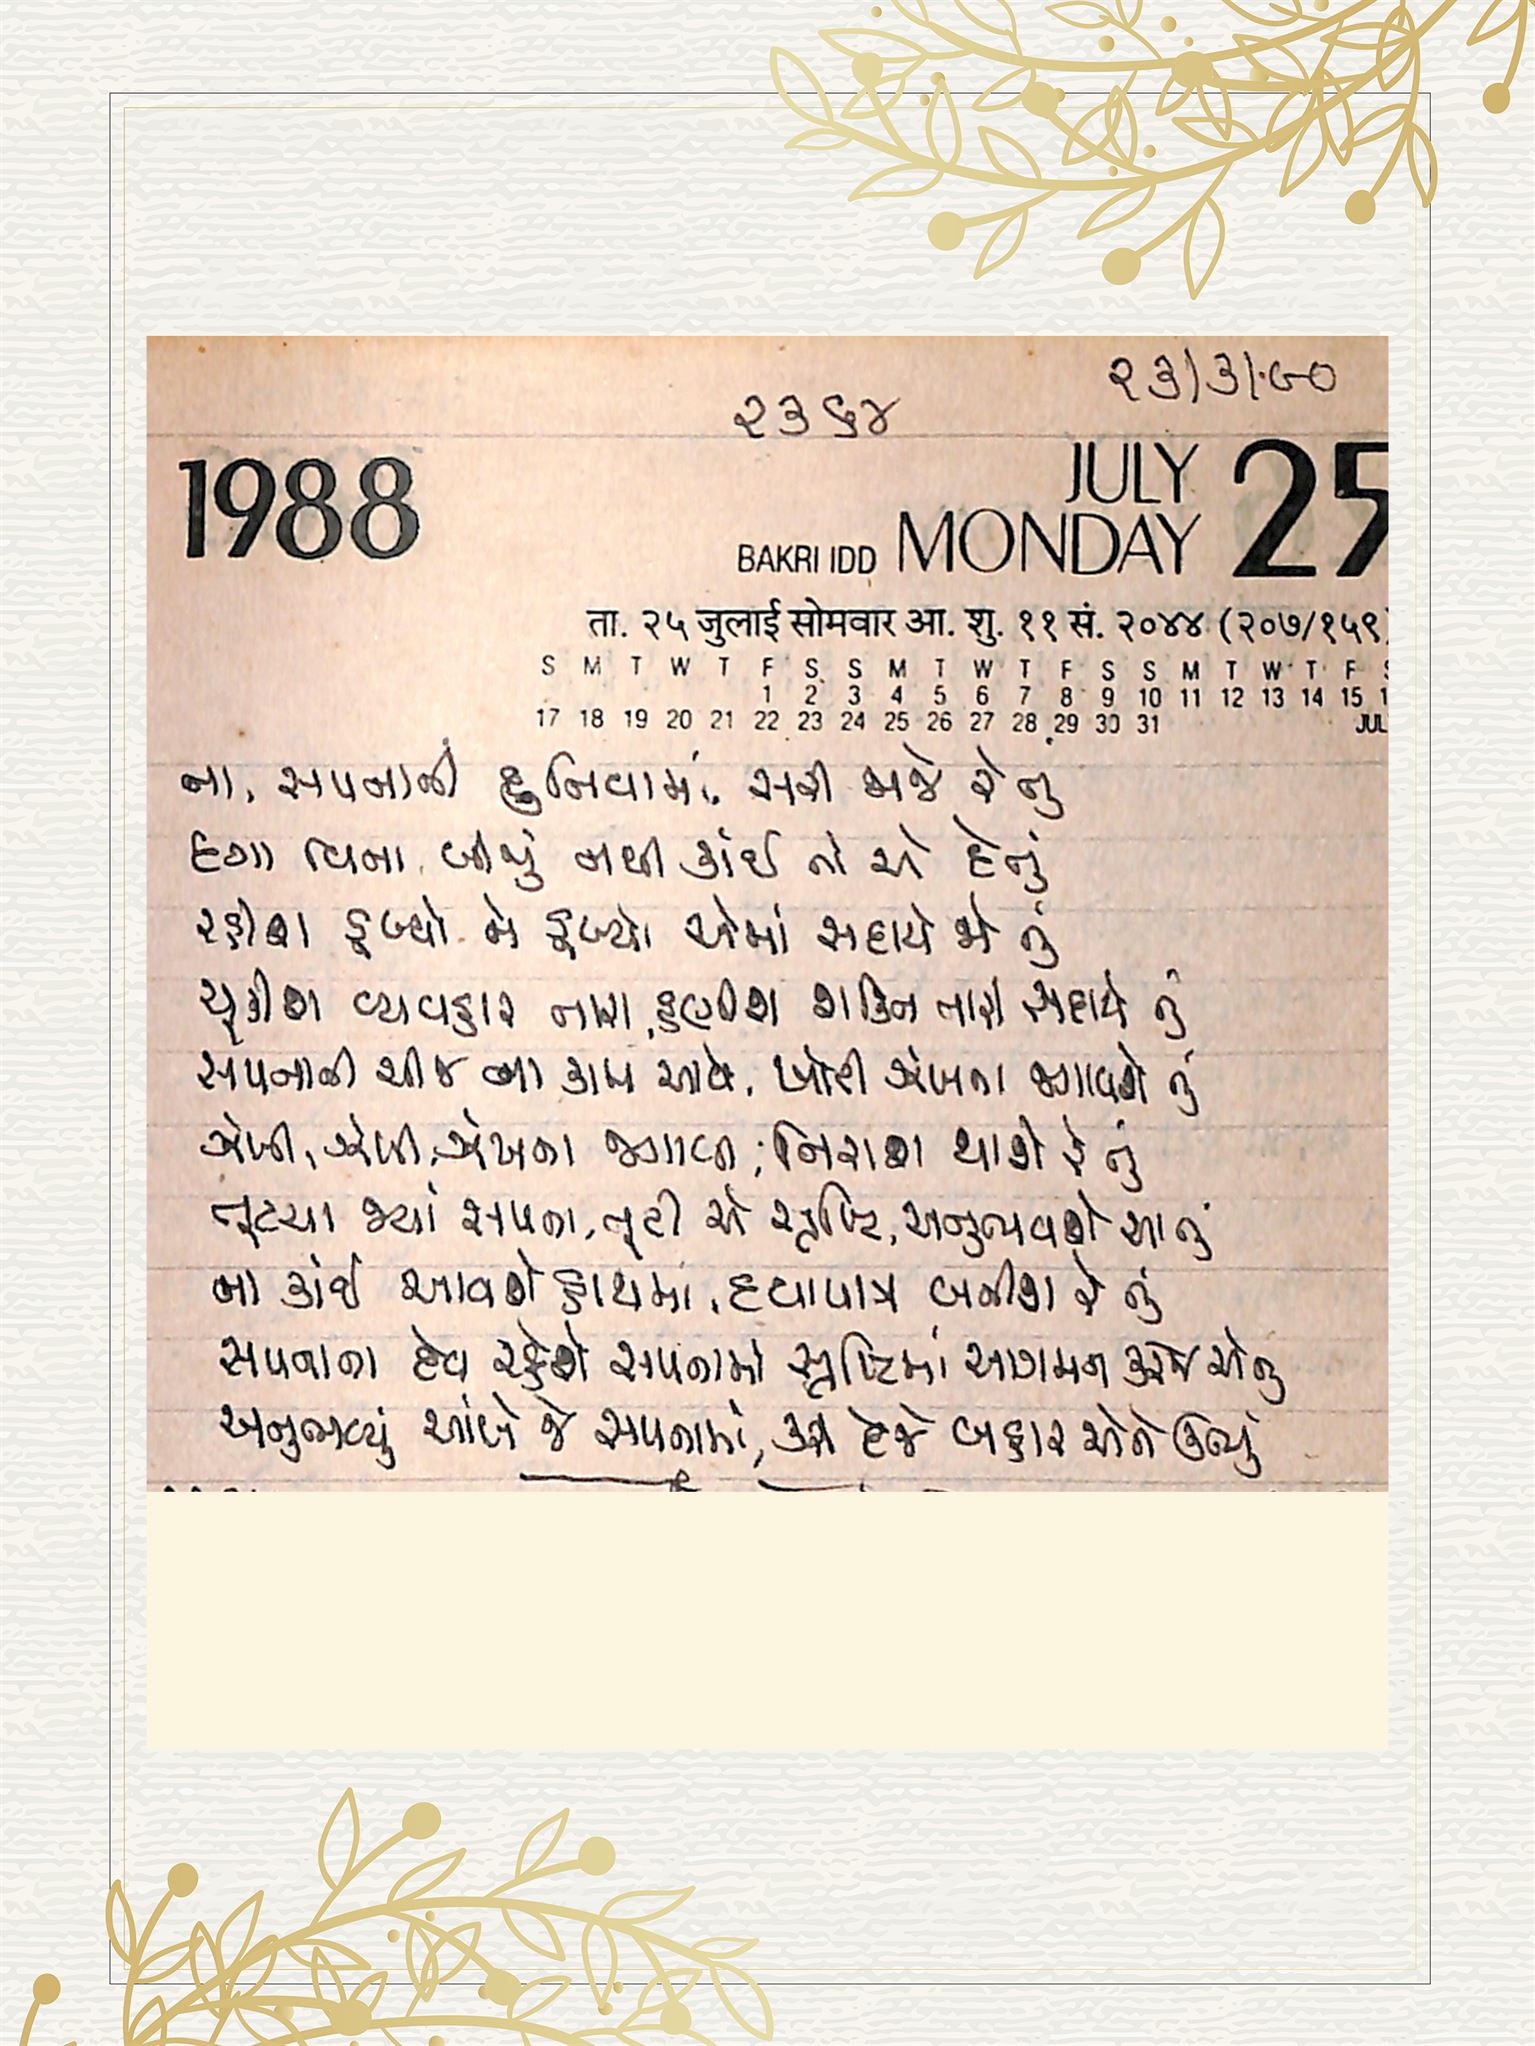 ૨૩/૩/૯૦
૨૩૬૪
1988
JULY
BAKRI IDD MONDAY 25
ता. २५ जुलाई सोमवार आ. शु. ११ सं. २०४४ (२०७/१५९)
S M T W T F S S M T W T F S S M T W T F S
1 2 3 4 5 6 7 8 9 10 11 12 13 14 15 1
17 18 19 20 21 22 23 24 25 26 27 28 29 30 31 JUL
ના, સપનાની દુનિયામાં, સરી જાજે રે તું
દગા વિના બીજું નથી કાંઈ તો એ દેનું
રહીશ ડૂબ્યો ને ડૂબ્યો એમાં સદાયે જો તું
ચૂકીશ વ્યવહાર તારા, હણીશ શક્તિ તારી સદાયે તું
સપનાની ચીજ ના કામ આવે, ખોટી ઝંખના જગાવશે તું
એવી, એવી, ઝંખના જગાવી, નિરાશ થાશે રે તું
તૂટયા જ્યાં સપના, તૂટી એ સૃષ્ટિ, અનુભવશે આ તું
ના કાંઈ આવશે હાથમાં, દયાપાત્ર બનીશ રે તું
સપનાના દેવ રહેશે સપનામાં સૃષ્ટિમાં આગમન કરજે એનું
અનુભવ્યું આંખે જે સપનામાં, કરી દેજે બહાર એને ઉભું